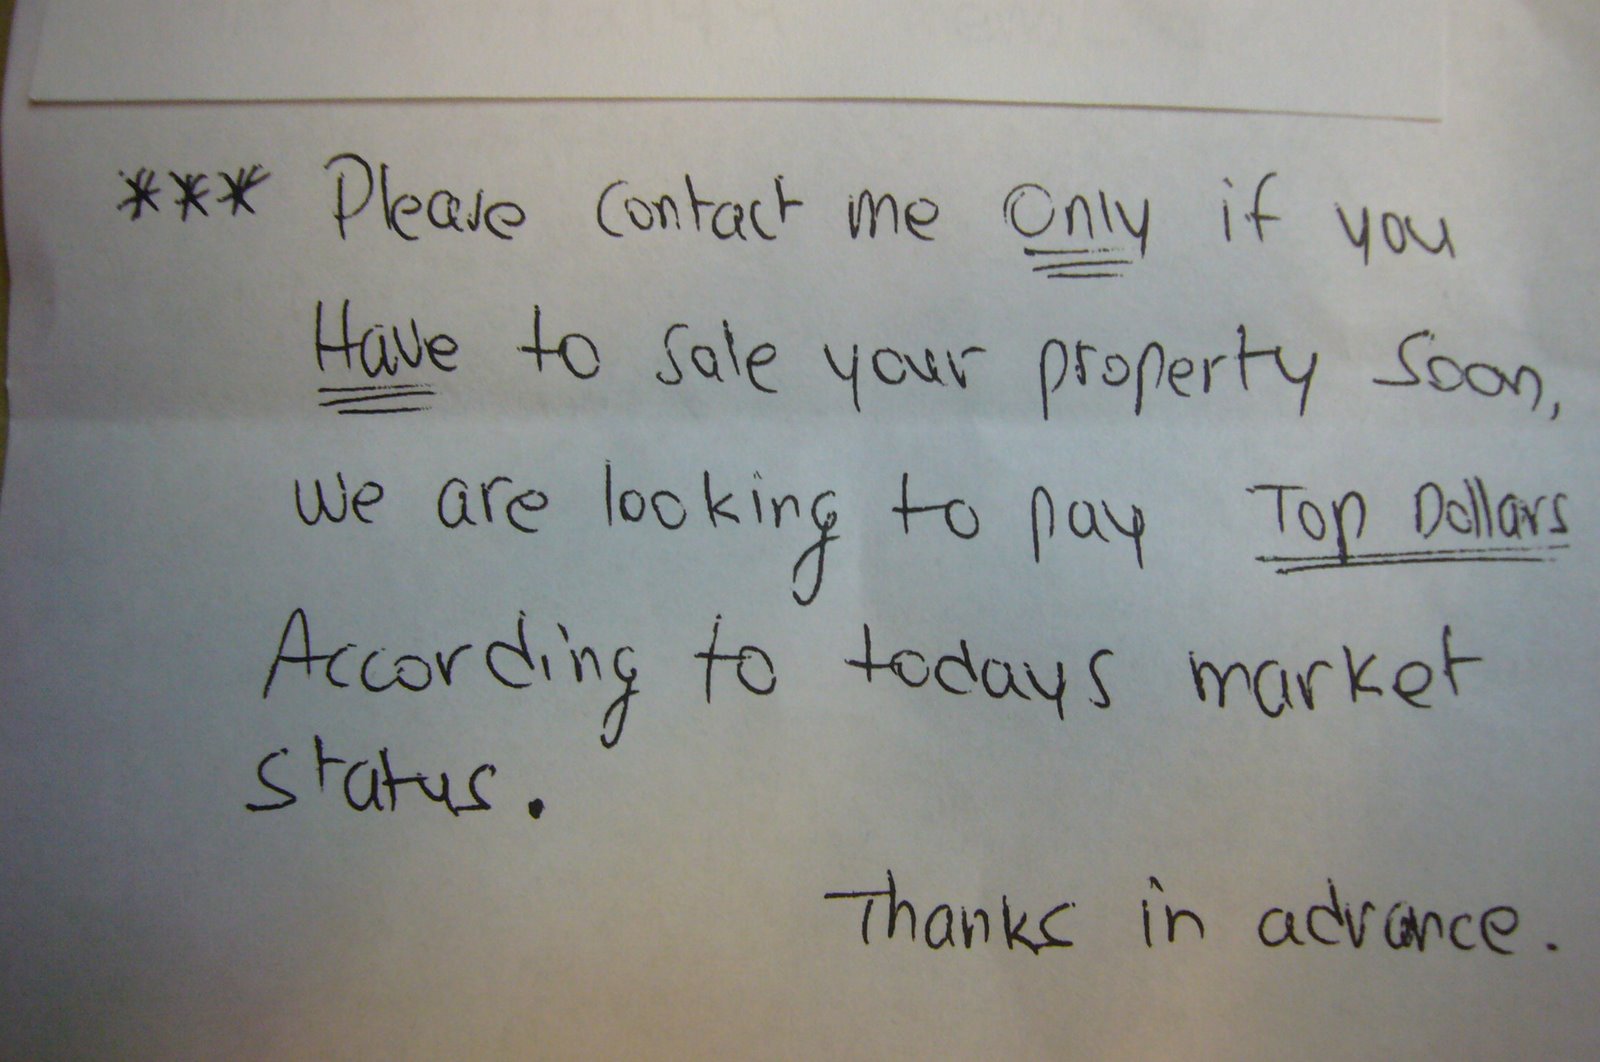 *** Please contact me Only if you
Have to sale your property soon,
we are looking to pay Top Dollars
According to todays market
status.
Thanks in advance.